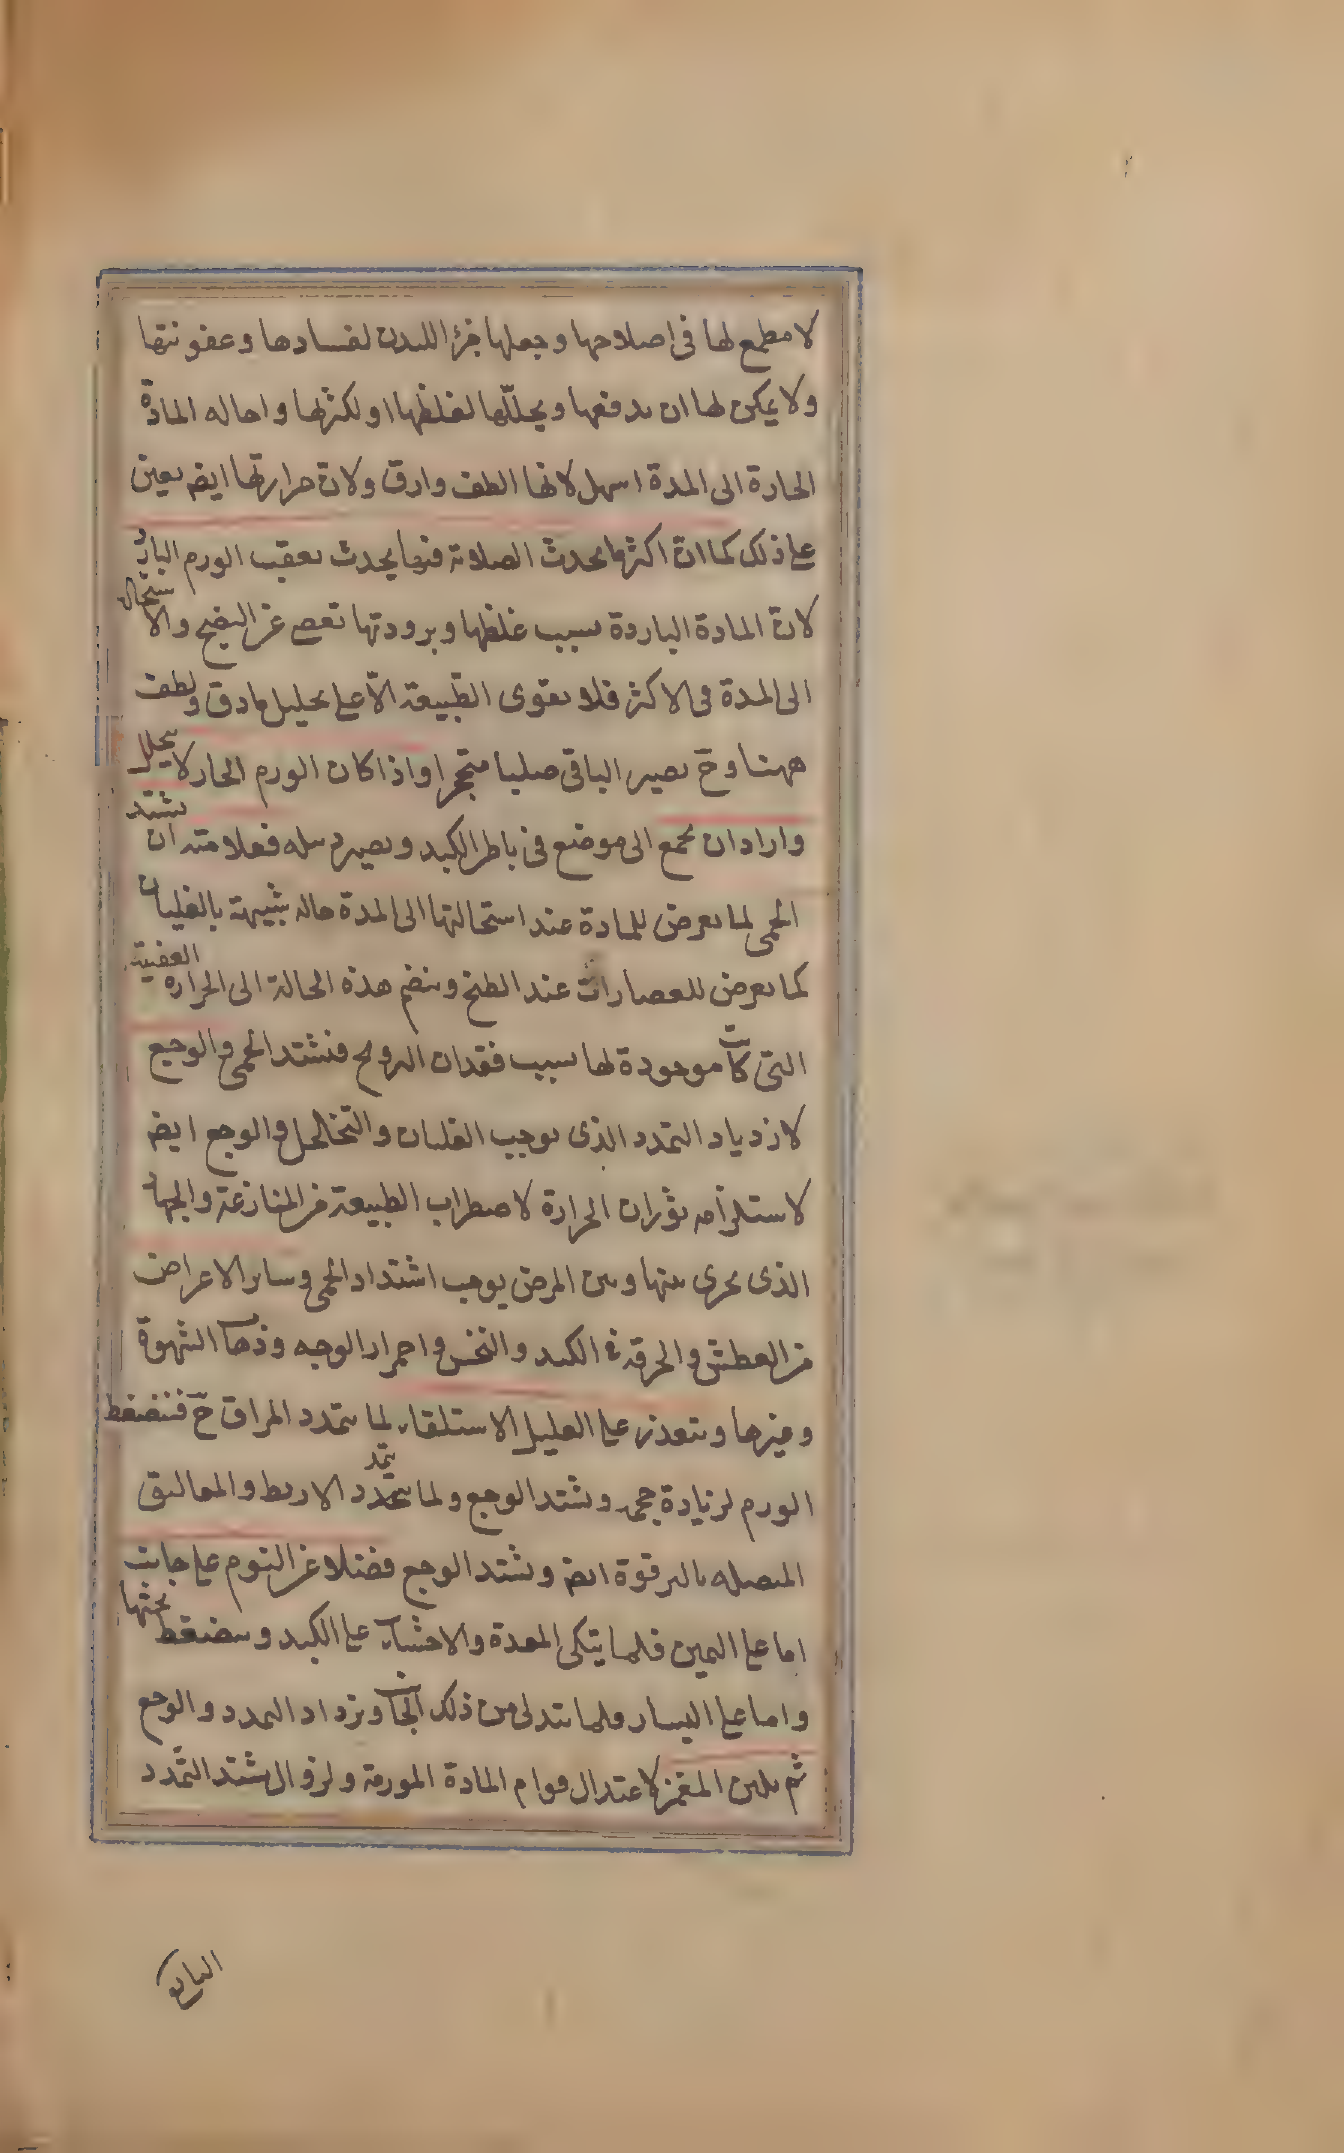 لا مطمع لها فى اصلاحها وجعلها جزءا للبدن لفسادها وعفونتها
ولا يمكن لها ان يدفعها ويحللها لغلظها او لكثرتها واحاله المادة
الحارة الى المدة اسهل لانها الطف وارق ولان حرارتها ايضا يعين
على ذلك كما ان اكثر ما يحدث الصلابة فيها يحدث بعقب الورم البارد
لان المادة الباردة بسبب غلظها وبرودتها تعصى عن النضج والاستحالة
الى المدة فى الاكثر فلا يقوى الطبيعة الا على تحليل ما رق ولطف
ههنا وح يصير الباقى صلبا متحجرا واذا كان الورم الحار لا يتحلل
واراد ان يجمع الى موضع فى باطن الكبد ويصير دبيله فعلامته ان يشتد
الحمى لما يعرض للمادة عند استحالتها الى المدة حاله شبيهة بالغليان
كما يعرض للعصارات عند الطبخ وينضم هذه الحالة الى الحرارة العفنية
التى كانت موجودة لها بسبب فقدان التروح فتشتد الحمى والوجع
لازدياد التمدد الذى يوجب الغليان والتخلخل والوجع ايضا
لاستلزامه ثوران الحرارة لاضطراب الطبيعة من المنازعة والجهاد
الذى يجرى بينها وبين المرض يوجب اشتداد الحمى وسائر الاعراض
من العطش والحرقة فى الكبد والنخس واحمرار الوجه وذهاب الشهوة
وغيرها ويتعذر على العليل الاستلقاء لما يتمدد المراق ح فينضغط
الورم لزيادة حجمه ويشتد الوجع ولما يتمدد الاربط والمعاليق
المتصله بالترقوة ايضا ويشتد الوجع فضلا عن النوم على جانب
اما على اليمين فلما يتكى المعدة والاحشاء على الكبد وينضغط تحتها
واما على اليسار فلما يتدلى من ذلك الجانب ويزداد التمدد والوجع
ثم يلين المغمز لاعتدال قوام المادة المورمة ولزوال شدة التمدد